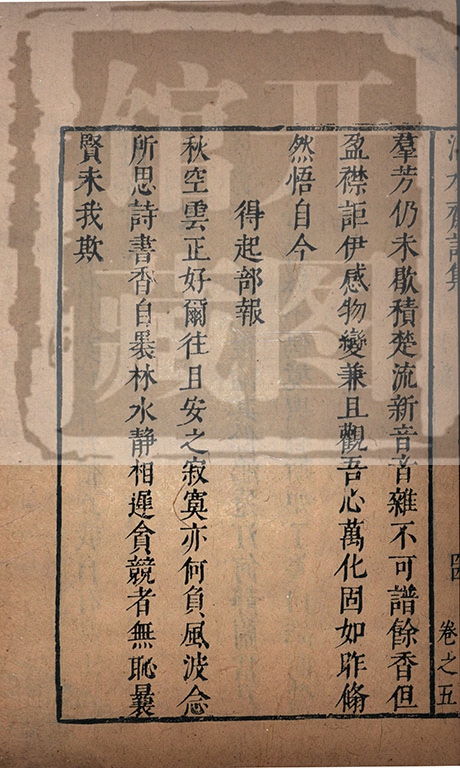 羣芳仍未歇積楚流新音音雜不可譜餘香但
盈襟詎伊感物變兼且觀吾心萬化固如昨翛
然悟自今
得起部報
秋空雲正好爾往且安之寂寞亦何負風波念
所思詩書香自褁林水靜相遲貪競者無恥曩
賢未我欺
卷之五